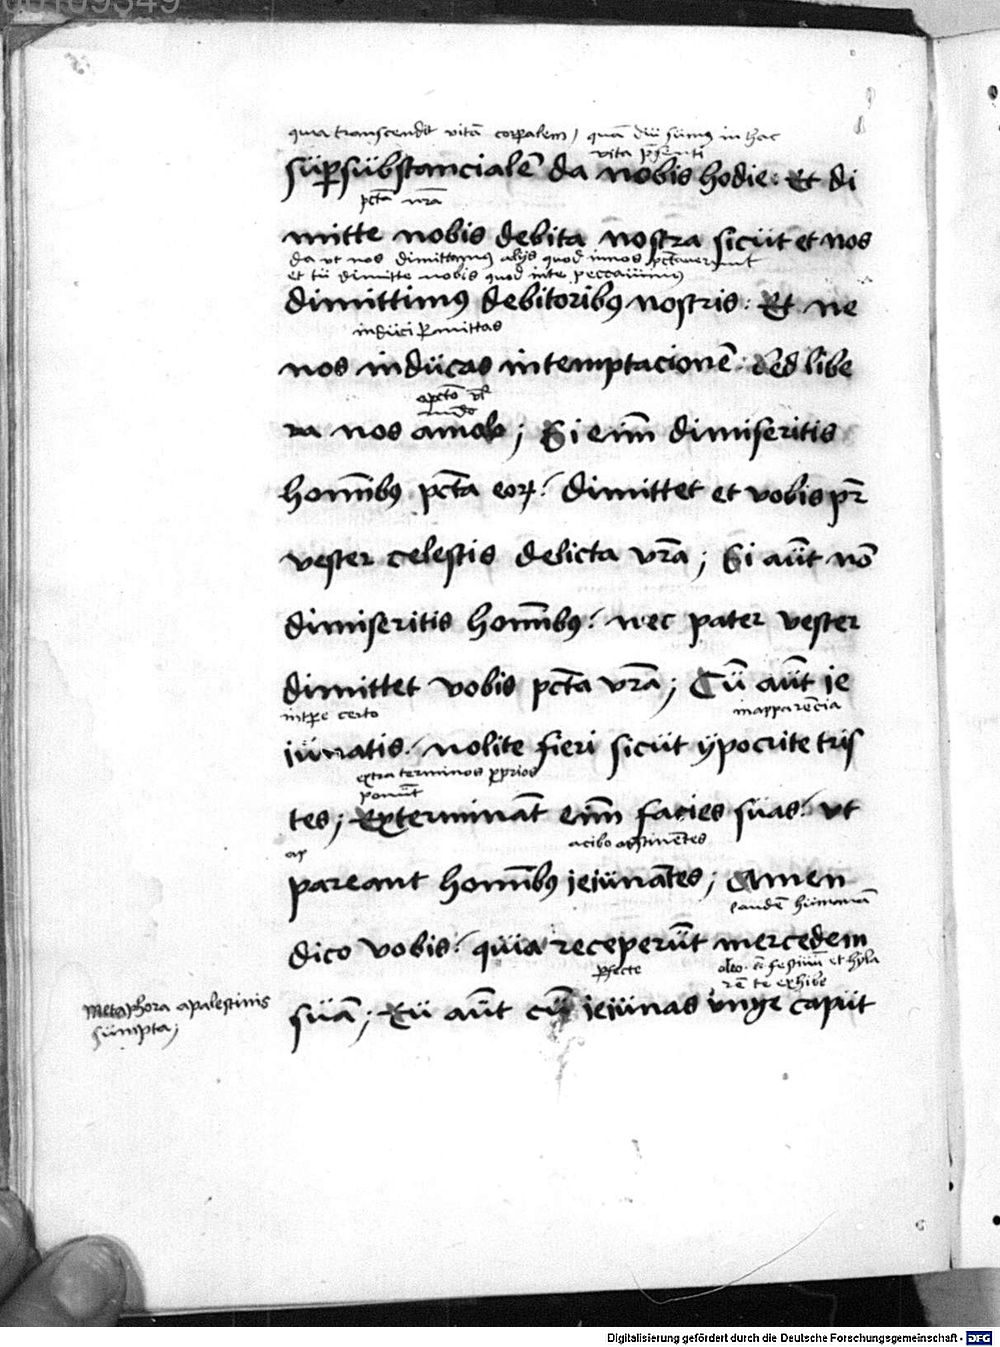 00109349
quia transcendit vitā corꝑalem / quā diu sumus in hac
vita p̄senti
suꝑsubstancialē da nobis hodie: Et di
pctā vr̄a
mitte nobis debita nostra sicut et nos
da vt nos dimittamus alijs quod in nos pctauerunt
et tu dimitte nobis quod in te peccauimus
dimittimꝰ debitoribꝰ nostris: Et ne
induci ꝑmittas
nos inducas in temptacionē: Sed libe
ra nos a malo; Si eīm dimiseritis
homībꝰ pctā eoꝝ: dimittet et vobis pr̄
vester celestis delicta vr̄a; Si aūt nō
dimiseritis homībꝰ: nec pater vester
dimittet vobis pctā vr̄a; Cū aūt ie
certo
in apparēcia
iunatis: nolite fieri sicut ypocrite tris
extra terminos ꝓprios
ponūt
tes; Extermināt eīm facies suas: vt
a cibo abstinētes
ap
pareant homībꝰ ieiunātes; Amen
laudē humanā
dico vobis: quia receperūt mercedem
ꝑfecte
oleo et hyla
rē te exhibe
suā; Tu aūt cū ieiunas vnge caput
Metaphora a palestinis
sumpta;
Digitalisierung gefördert durch die Deutsche Forschungsgemeinschaft - DFG